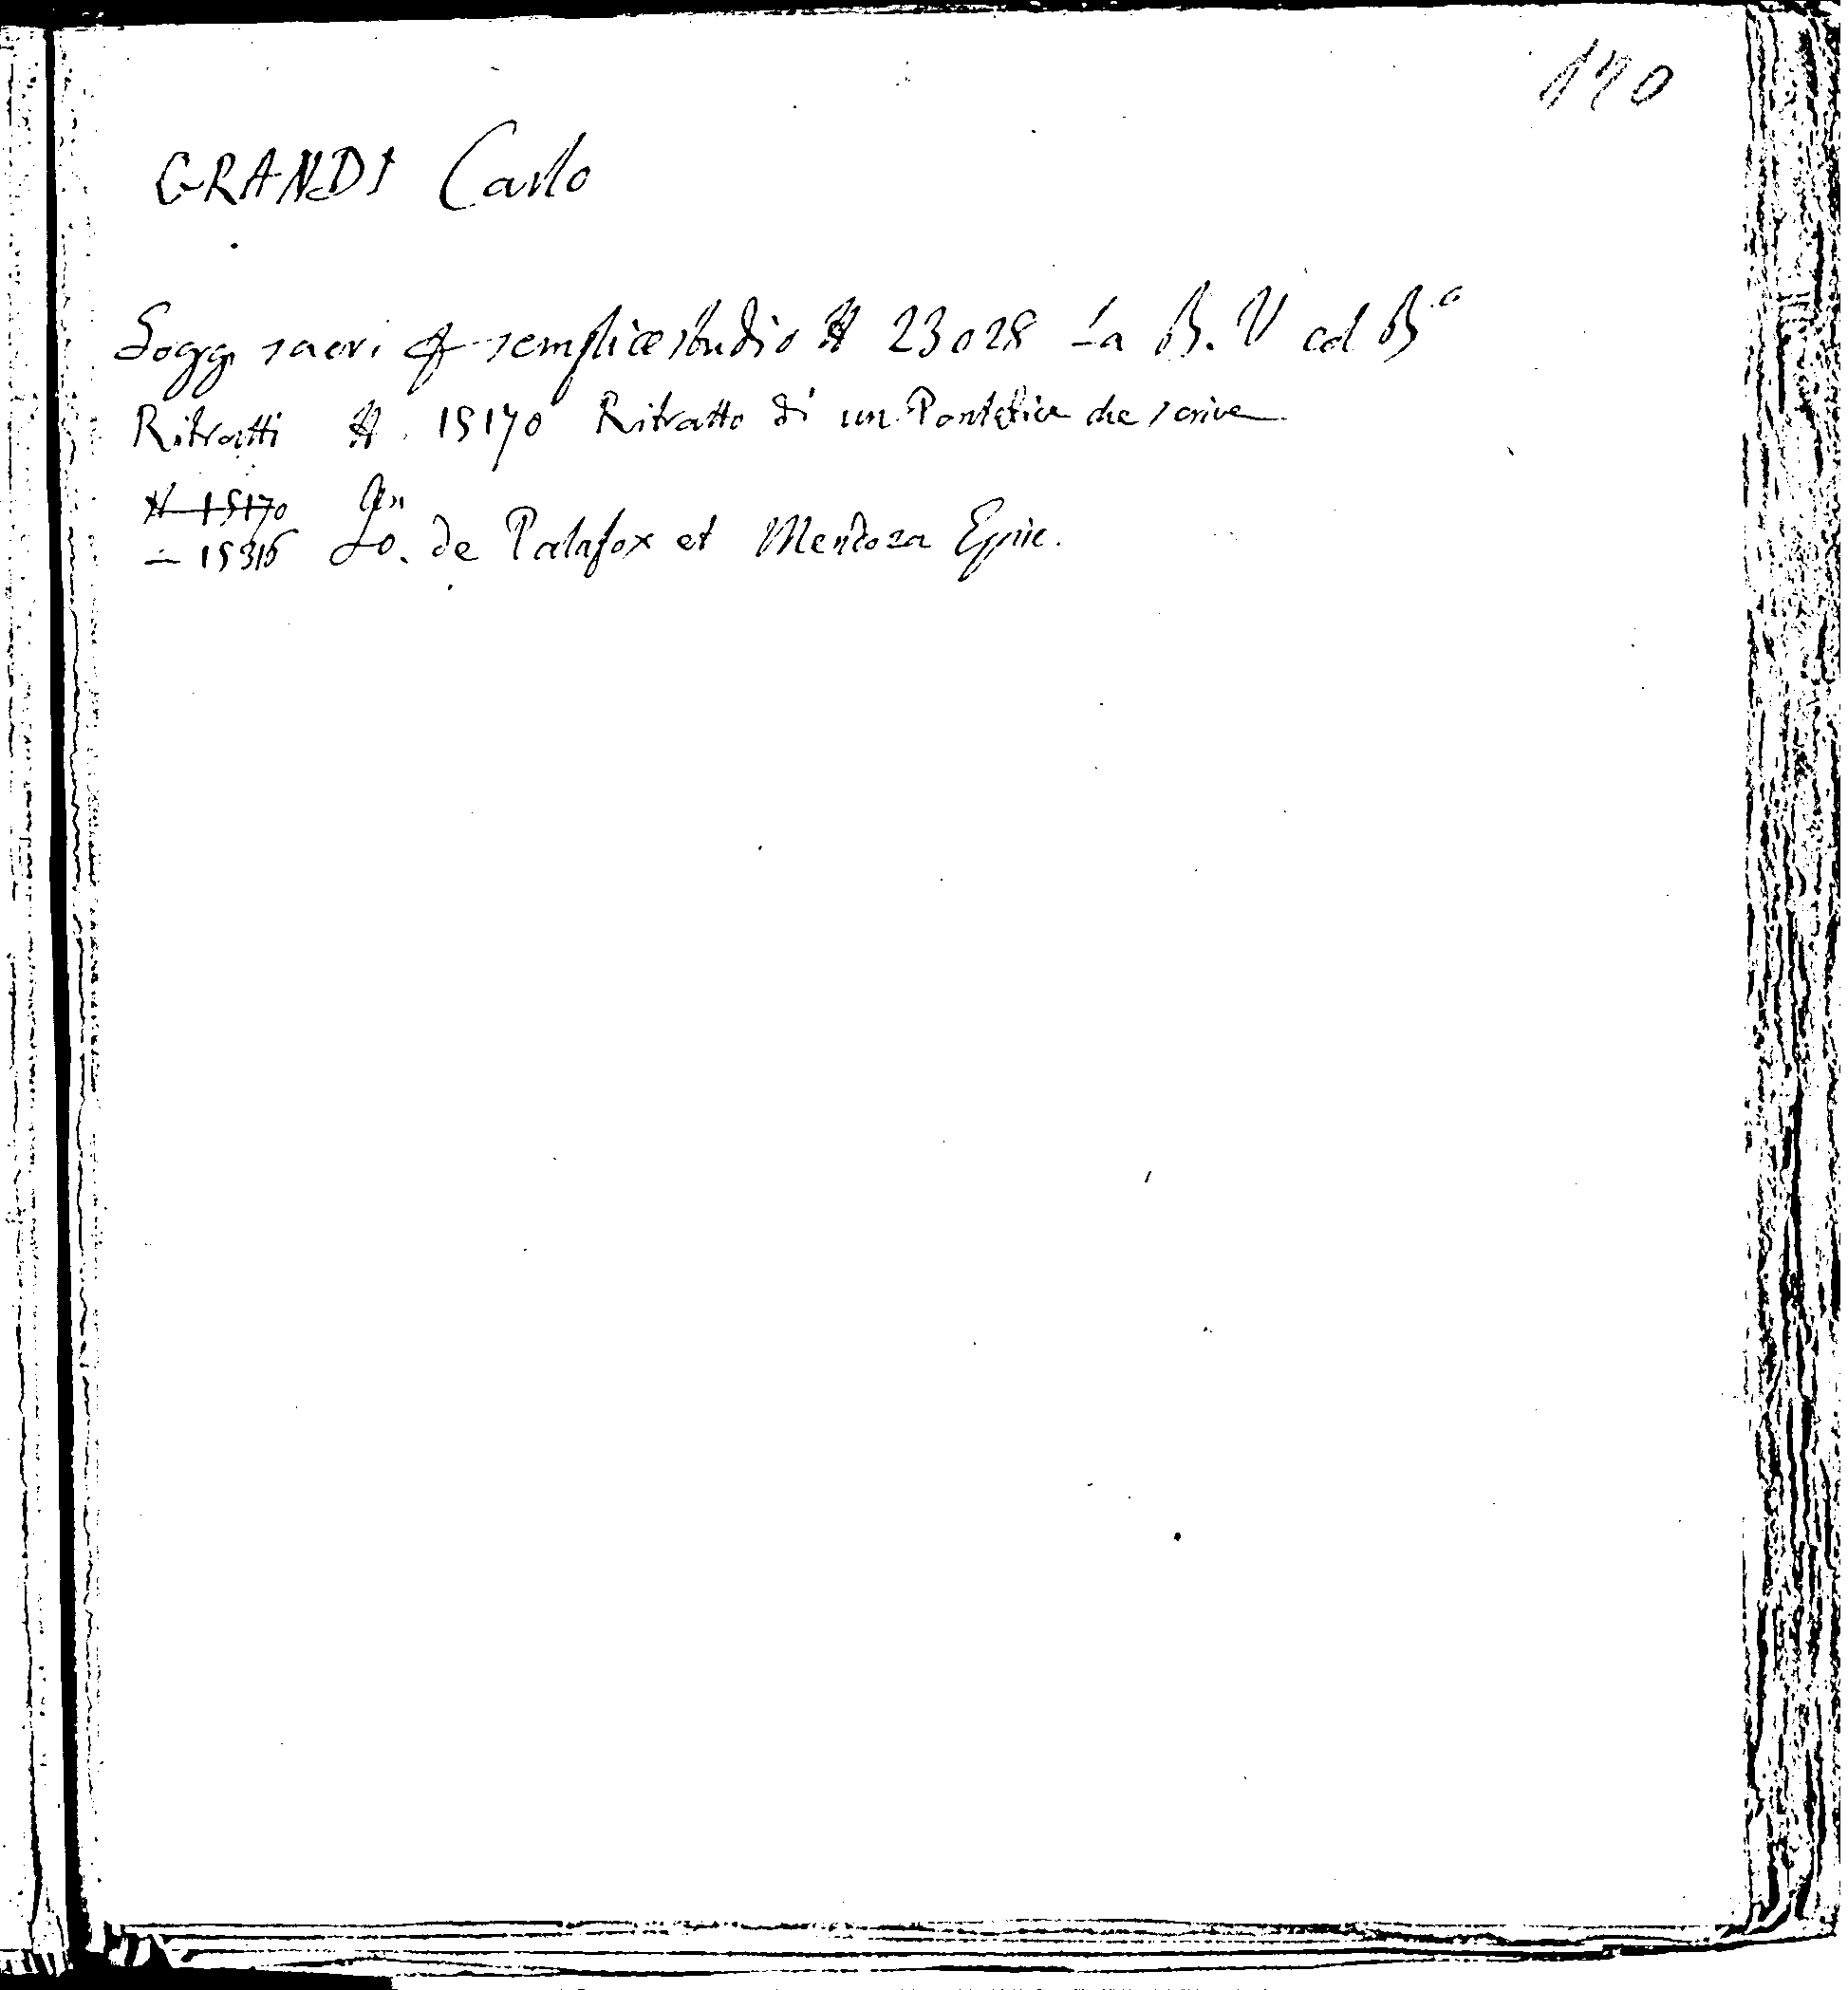 170
GRANDI Carlo
Sogg. sacri di semplice studio N 23028 La B. V col B.o
Ritratti N. 15170 Ritratto di un Pontefice che scrive
N 15170
— 15316 Jo. de Palafox et Mendoza Epic.